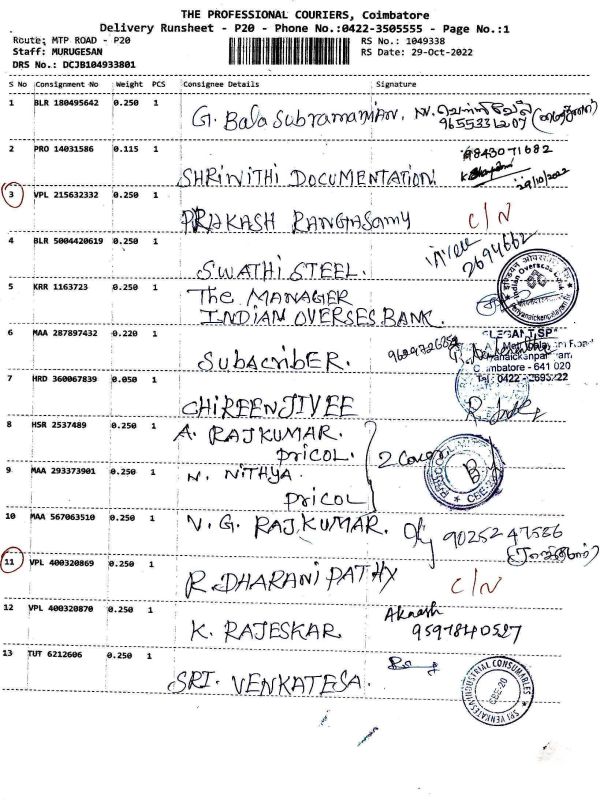 THE PROFESSIONAL COURIERS, Coimbatore
Delivery Runsheet - P20 - Phone No.:0422-3505555 - Page No.:1
Route: MTP ROAD - P20 RS No.: 1049338
Staff: MURUGESAN RS Date: 29-Oct-2022
DRS No.: DCJB104933801
S No Consignment No Weight PCS Consignee Details Signature
1 BLR 180495642 0.250 1 G. Bala Subramanian.
9655331207
2 PRO 14031586 0.115 1 SHRINITHI DOCUMENTATION 9843071682
29/10/2022
3 VPL 215632332 0.250 1 PRAKASH RANGASAMY C/N
4 BLR 5004420619 0.250 1 SWATHI STEEL. 2694662
5 KRR 1163723 0.250 1 The MANAGER
INDIAN OVERSES BANK.
6 MAA 287897432 0.220 1 SUBACRIBER.
ELEGANT SP
Coimbatore - 641 020
Tel: 0422 - 2693222
7 HRD 360067839 0.050 1 CHIREENJIVEE
8 HSR 2537489 0.250 1 A. RAJKUMAR.
PRICOL. 2 Cover
9 MAA 293373901 0.250 1 N. NITHYA.
PRICOL
10 MAA 567063510 0.250 1 V. G. RAJKUMAR. 9025247586
11 VPL 400320869 0.250 1 R. DHARANI PATHY C/N
12 VPL 400320870 0.250 1 K. RAJESKAR Akaash
9597840527
13 TUT 6212606 0.250 1 SRI. VENKATESA.
SRI VENKATESA INDUSTRIAL CONSUMABLES
CBE-20